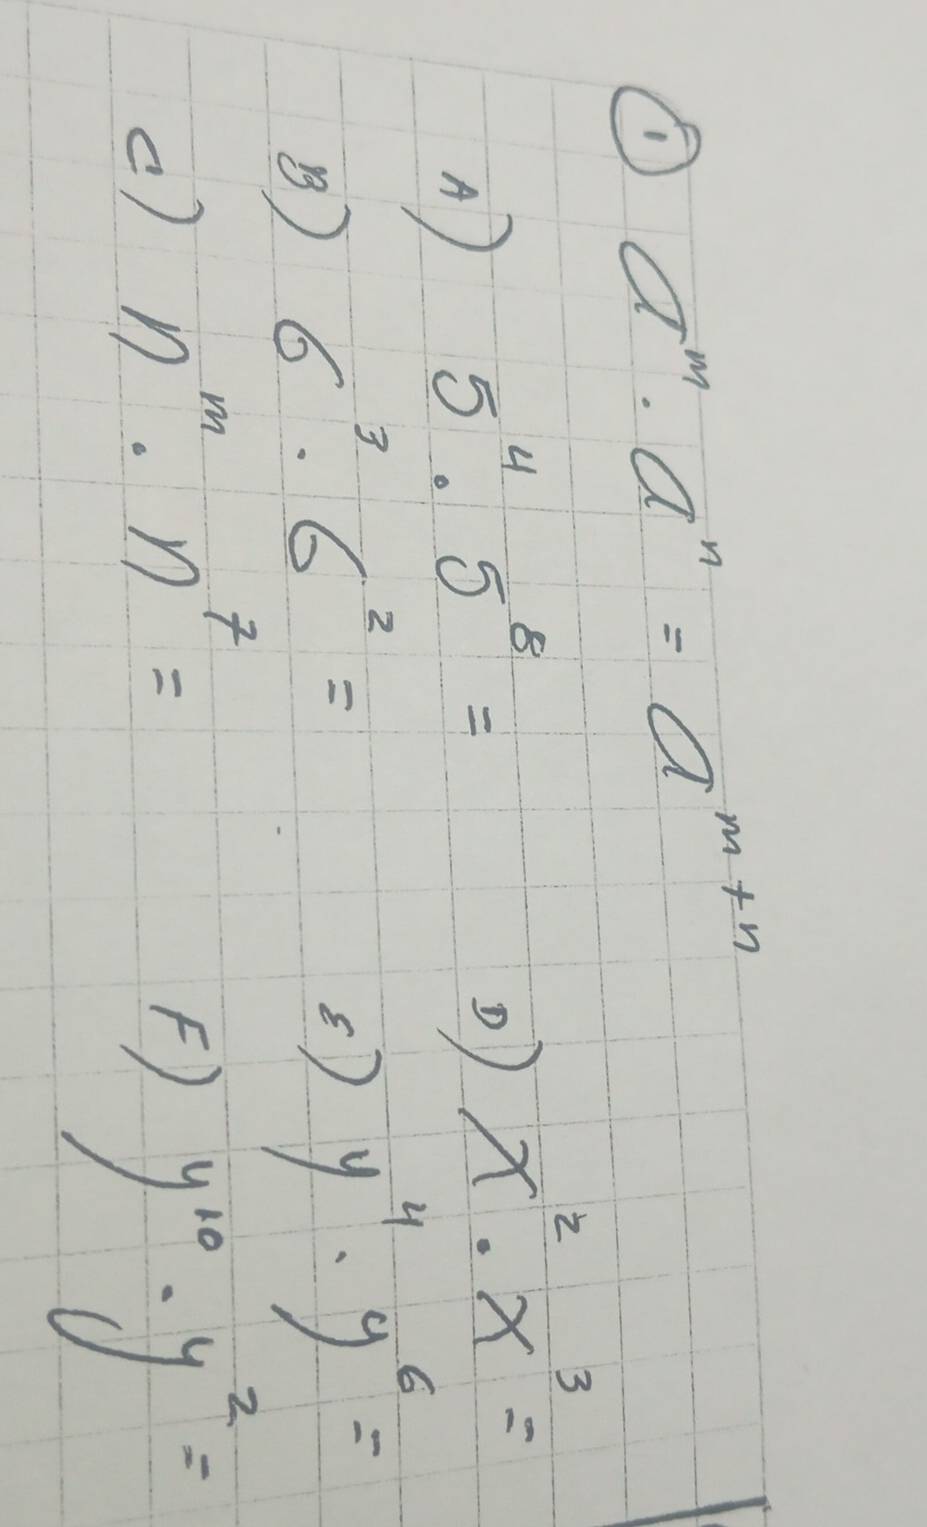 ① a^m · a^n = a^{m+n}
A) 5^4 · 5^8 =
B) 6^3 · 6^2 =
C) n^m · n^7 =
D) x^2 · x^3 =
E) y^4 · y^6 =
F) y^10 · y^2 =